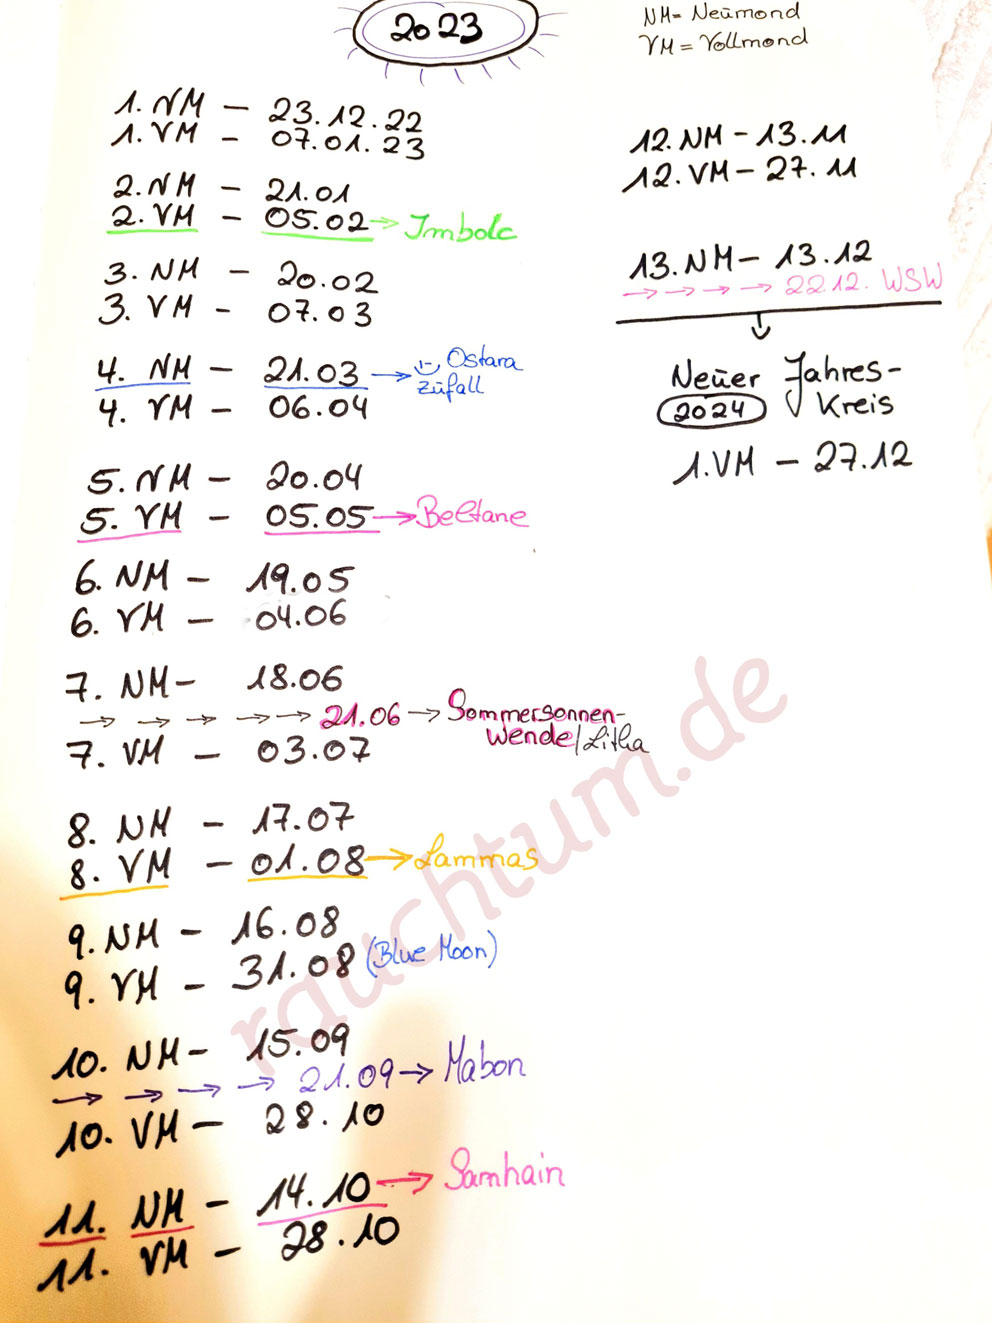 2023
NM = Neumond
VM = Vollmond
1. NM – 23.12.22
1. VM – 07.01.23
2. NM – 21.01
2. VM – 05.02 → Imbolc
3. NM – 20.02
3. VM – 07.03
4. NM – 21.03 → :-) Ostara
Zufall
4. VM – 06.04
5. NM – 20.04
5. VM – 05.05 → Beltane
6. NM – 19.05
6. VM – 04.06
7. NM – 18.06
→ → → → → 21.06 → Sommersonnen-
wende/Litha
7. VM – 03.07
8. NM – 17.07
8. VM – 01.08 → Lammas
9. NM – 16.08
9. VM – 31.08 (Blue Moon)
10. NM – 15.09
→ → → → 21.09 → Mabon
10. VM – 28.10
11. NM – 14.10 → Samhain
11. VM – 28.10
12. NM – 13.11
12. VM – 27.11
13. NM – 13.12
→ → → → 22.12. WSW
Neuer Jahres-
2024 Kreis
1. VM – 27.12
rauchtum.de